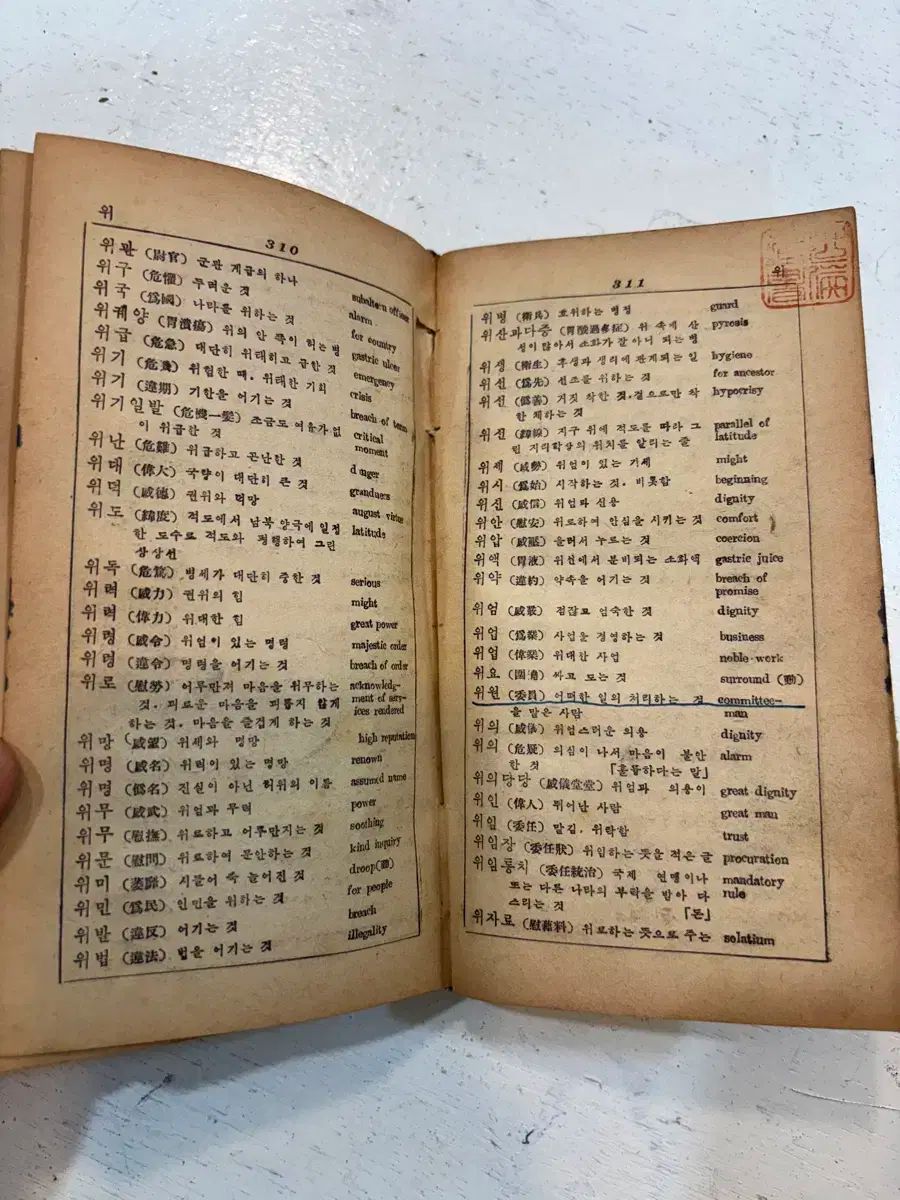 위
310
위관 (尉官) 군관 계급의 하나 subaltern officer
위구 (危懼) 두려운 것 alarm
위국 (爲國) 나라를 위하는 것 for country
위궤양 (胃潰瘍) 위의 안 쪽이 허는 병 gastric ulcer
위급 (危急) 대단히 위태하고 급한 것 emergency
위기 (危機) 위험한 때. 위태한 기회 crisis
위기 (違期) 기한을 어기는 것 breach of term
위기일발 (危機一髮) 조금도 여유가 없 critical
이 위급한 것 moment
위난 (危難) 위급하고 곤난한 것 danger
위대 (偉大) 국량이 대단히 큰 것 grandeurs
위덕 (威德) 권위와 덕망 august virtue
위도 (緯度) 적도에서 남북 양극에 일정 latitude
한 도수로 적도와 평행하여 그린
상상선
위독 (危篤) 병세가 대단히 중한 것 serious
위력 (威力) 권위의 힘 might
위력 (偉力) 위대한 힘 great power
위령 (威令) 위엄이 있는 명령 majestic order
위령 (違令) 명령을 어기는 것 breach of order
위로 (慰勞) 어루만져 마음을 위무하는 acknowledg-
것. 괴로운 마음을 괴롭지 않게 ment of serv-
하는 것. 마음을 즐겁게 하는 것 ices rendered
위망 (威望) 위세와 명망 high reputation
위명 (威名) 위력이 있는 명망 renown
위명 (僞名) 진실이 아닌 허위의 이름 assumed name
위무 (威武) 위엄과 무력 power
위무 (慰撫) 위로하고 어루만지는 것 soothing
위문 (慰問) 위로하여 문안하는 것 kind inquiry
위미 (萎靡) 시들어 축 늘어진 것 droop(動)
위민 (爲民) 인민을 위하는 것 for people
위반 (違反) 어기는 것 breach
위법 (違法) 법을 어기는 것 illegality
311
위
위병 (衛兵) 호위하는 병정 guard
위산과다증 (胃酸過多症) 위 속에 산 pyrosis
성이 많아서 소화가 잘 아니 되는 병
위생 (衛生) 후생과 생리에 관계되는 일 hygiene
위선 (爲先) 선조를 위하는 것 for ancestor
위선 (僞善) 거짓 착한 것.겉으로만 착 hypocrisy
한 체하는 것
위선 (緯線) 지구 위에 적도를 따라 그 parallel of
린 지리학상의 위치를 알리는 줄 latitude
위세 (威勢) 위엄이 있는 기세 might
위시 (爲始) 시작하는 것. 비롯함 beginning
위신 (威信) 위엄과 신용 dignity
위안 (慰安) 위로하여 안심을 시키는 것 comfort
위압 (威壓) 을러서 누르는 것 coercion
위액 (胃液) 위선에서 분비되는 소화액 gastric juice
위약 (違約) 약속을 어기는 것 breach of
promise
위엄 (威嚴) 점잖고 엄숙한 것 dignity
위업 (爲業) 사업을 경영하는 것 business
위업 (偉業) 위대한 사업 noble work
위요 (圍繞) 싸고 도는 것 surround (動)
위원 (委員) 어떠한 일의 처리하는 것 committee-
을 맡은 사람 man
위의 (威儀) 위엄스러운 의용 dignity
위의 (危疑) 의심이 나서 마음이 불안 alarm
한 것 「흔들하다는 말」
위의당당 (威儀堂堂) 위엄과 의용이 great dignity
위인 (偉人) 뛰어난 사람 great man
위임 (委任) 맡김. 위탁함 trust
위임장 (委任狀) 위임하는 뜻을 적은 글 procuration
위임통치 (委任統治) 국제 연맹이나 mandatory
또는 다른 나라의 부탁을 받아 다 rule
스리는 것 「돈」
위자료 (慰藉料) 위로하는 뜻으로 주는 solatium